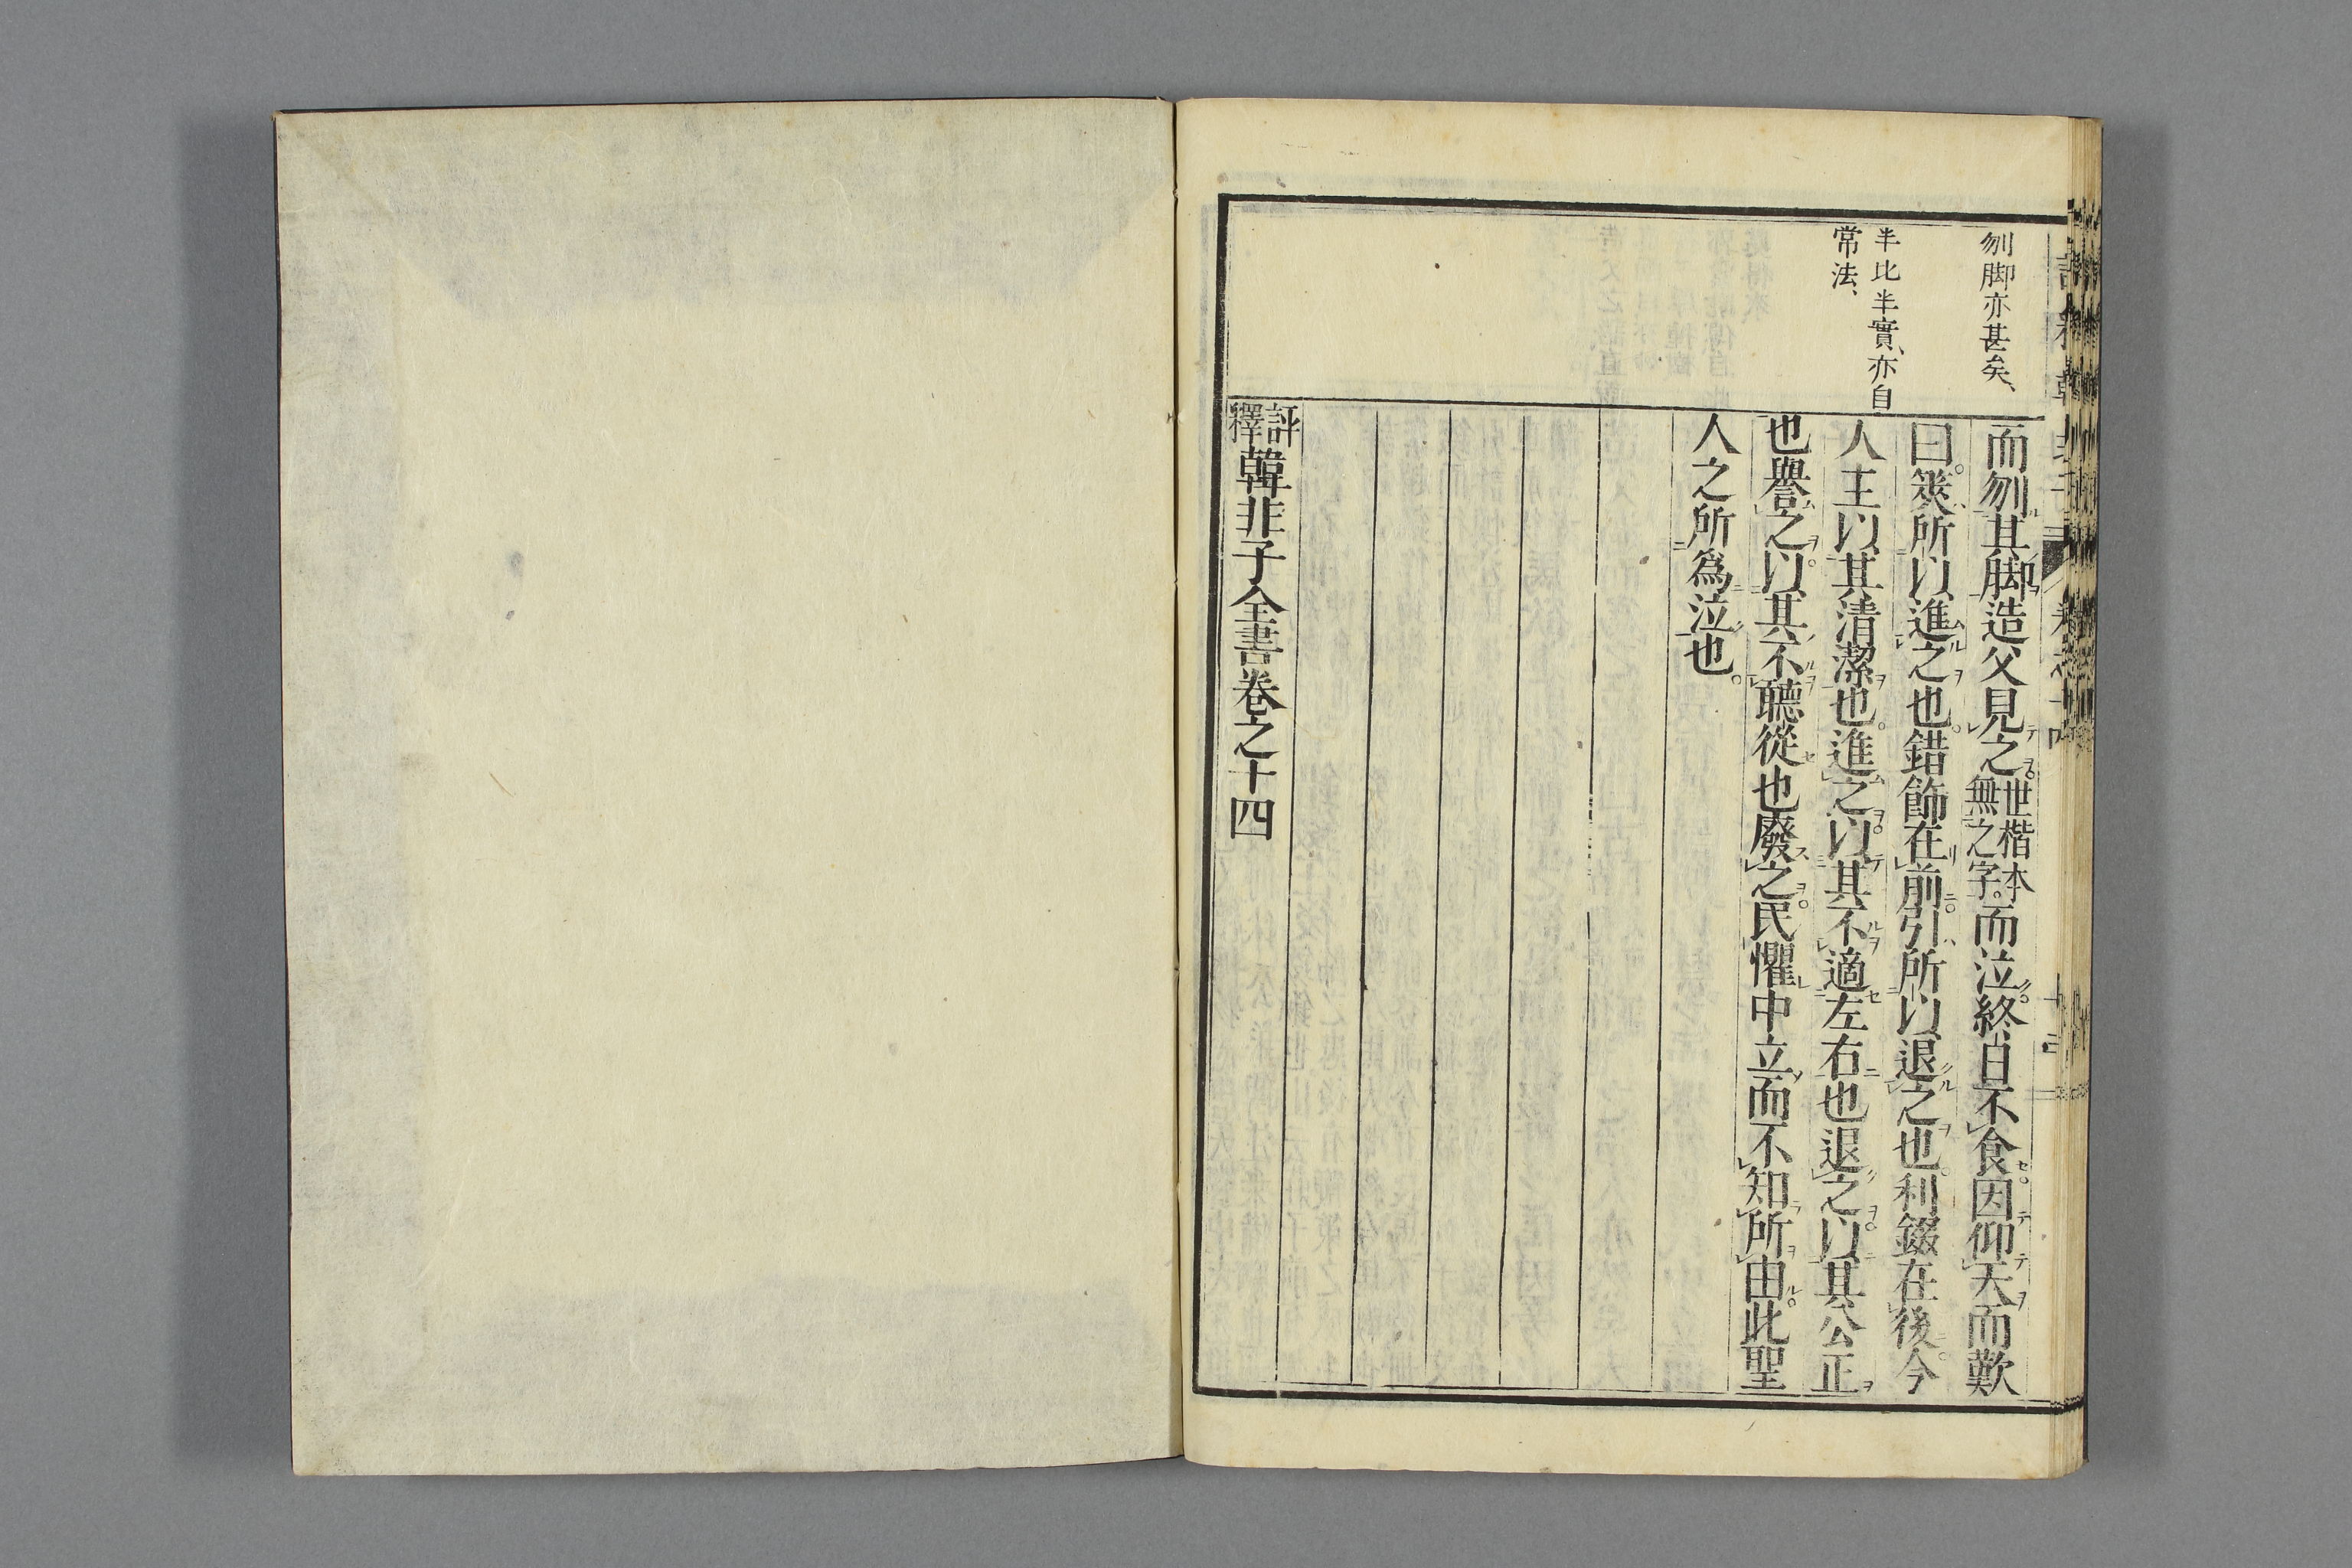 刎脚亦甚矣、
半比半實、亦自
常法、
而刎其脚造父見之世楷本無之字。而泣終日不食因仰天而歎
曰筴所以進之也錯飾在前引所以退之也利錣在後今
人主以其清潔也進之以其不適左右也退之以其公正
也譽之以其不聽從也廢之民懼中立而不知所由此聖
人之所爲泣也。
評釋韓非子全書卷之十四